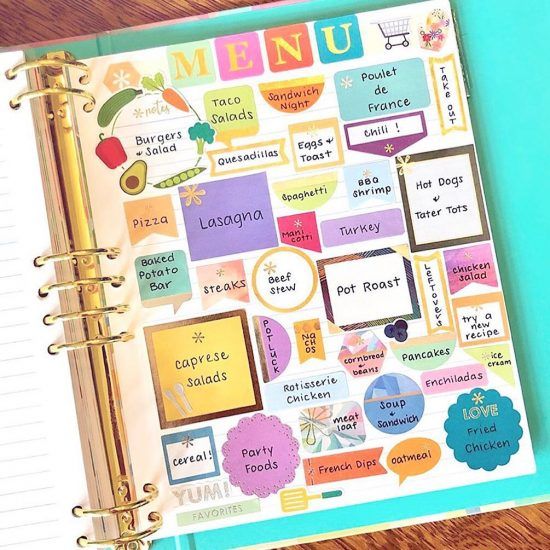 MENU
notes
Burgers
& Salad
Taco
Salads
Sandwich
Night
Poulet
de
France
Take out
Quesadillas
Eggs &
Toast
Chili !
Pizza
Lasagna
Spaghetti
BBQ
Shrimp
Hot Dogs
&
Tater Tots
Mani
cotti
Turkey
Baked
Potato
Bar
steaks
Beef
stew
Pot Roast
Leftovers
chicken
salad
try a
new
recipe
caprese
salads
POTLUCK
Na
ch
os
cornbread
& beans
Pancakes
ice
cream
Rotisserie
Chicken
Enchiladas
cereal!
Party
Foods
meat
loaf
Soup
&
Sandwich
LOVE
Fried
Chicken
French Dips
oatmeal
YUM!
FAVORITES